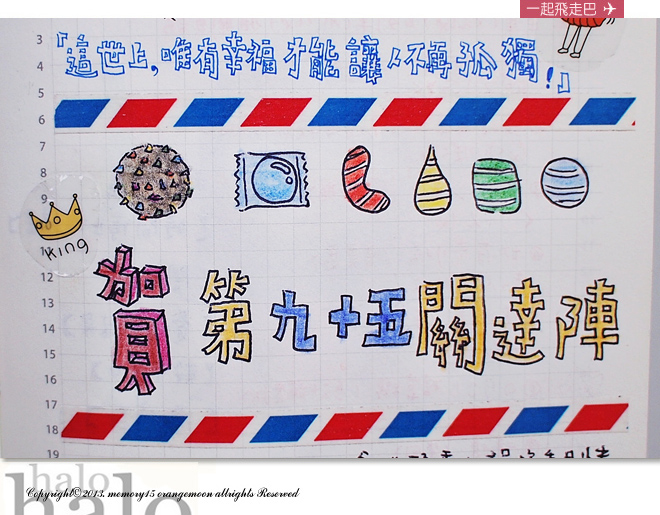 一起飛走巴
「這世上,唯有幸福才能讓人不再孤獨!」
3
4
5
6
7
8
9
king
12
13
14
15
16
17
18
19
賀 第九十五關達陣
halo
halo
Copyright© 2013. memory15 orangemoon allrights Reserved